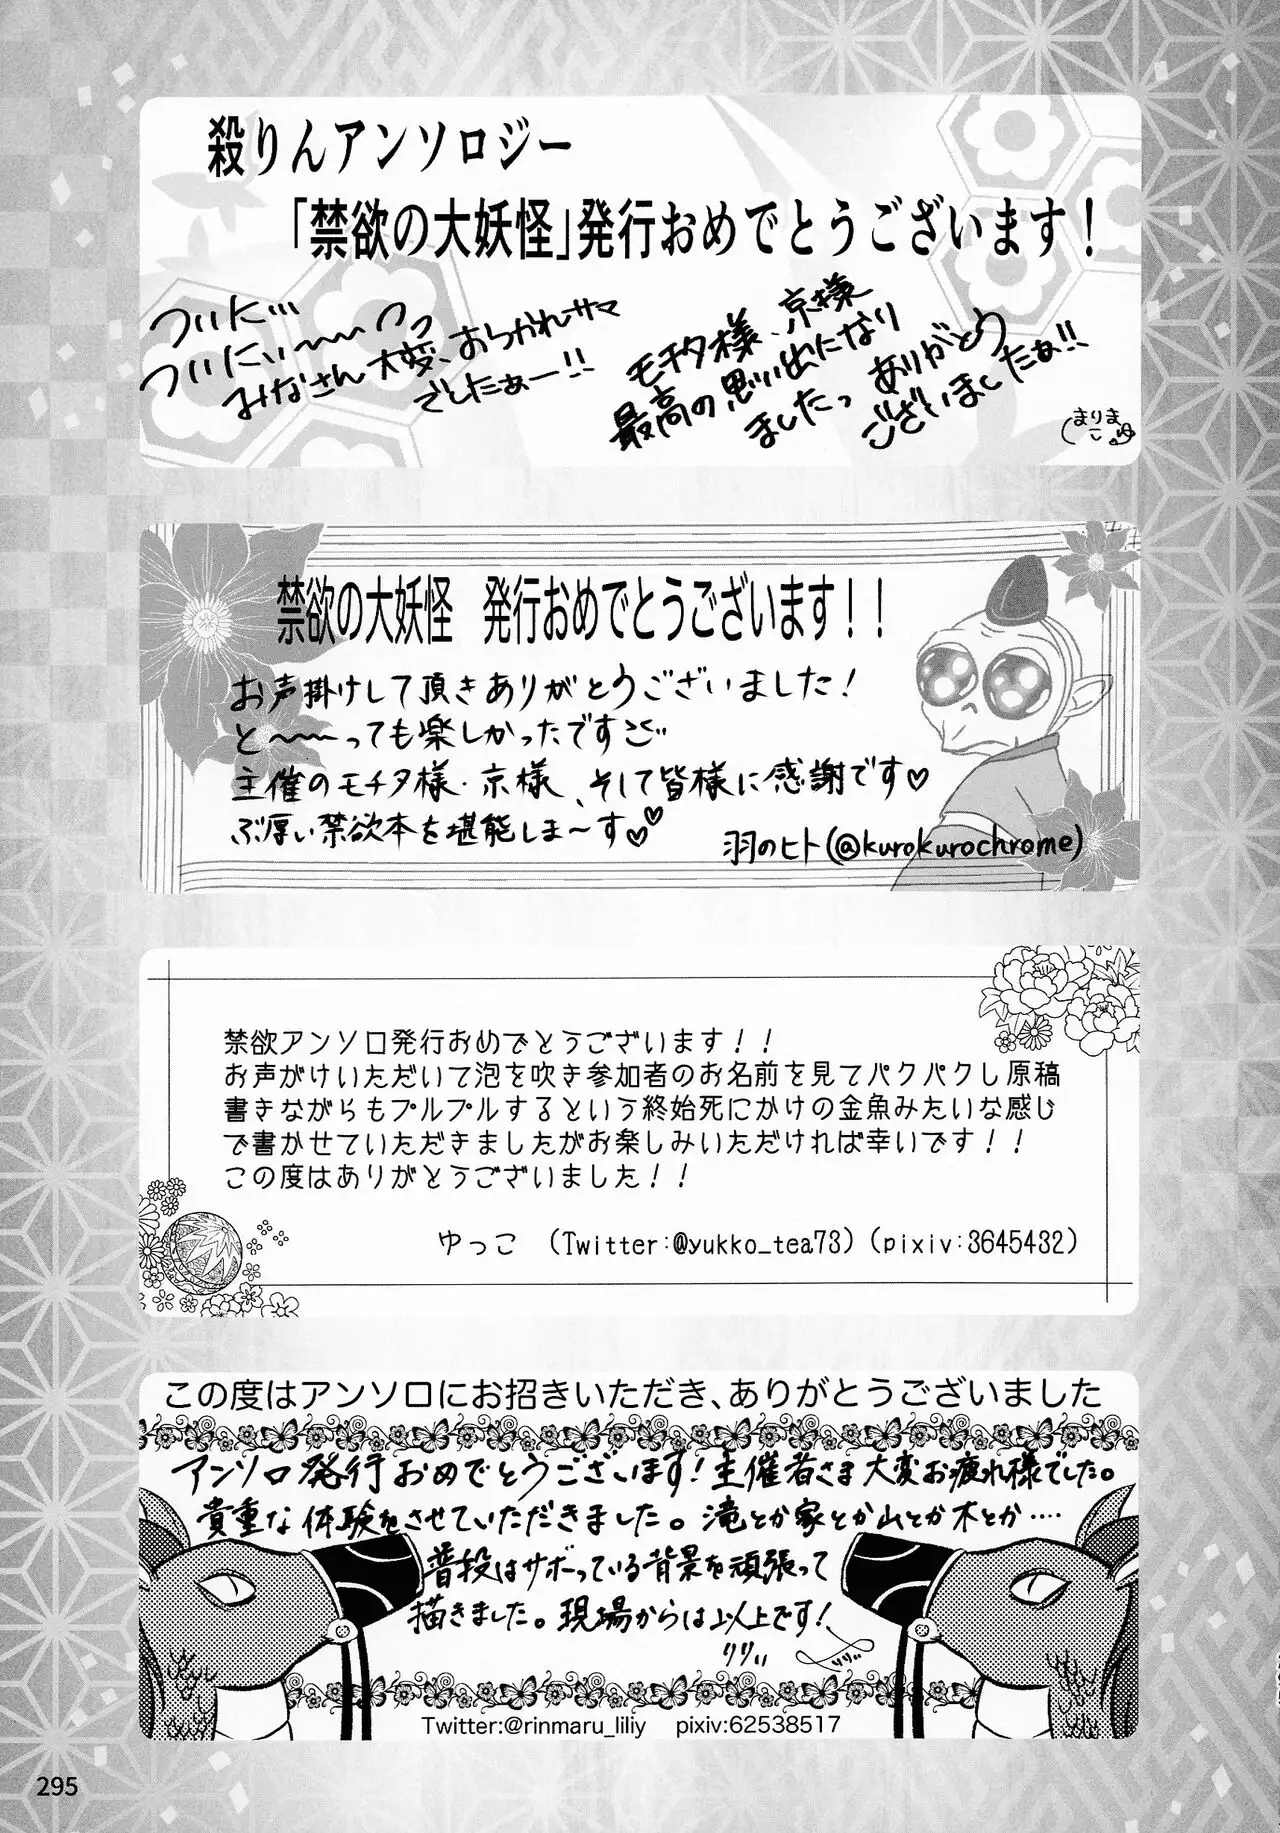 殺りんアンソロジー
「禁欲の大妖怪」発行おめでとうございます！
ついに…
ついにぃ〜〜っっ
みなさん大変、おつかれサマ
でしたぁー!!
モチタ様、京様
最高の思い出になり
ましたっ ありがとう
ございましたぁ!!
まりまこ
禁欲の大妖怪 発行おめでとうございます！！
お声掛けして頂きありがとうございました！
と〜〜っても楽しかったです
主催のモチタ様・京様、そして皆様に感謝です♡
ぶ厚い禁欲本を堪能しま〜す♡♡
羽のヒト(@kurokurochrome)
禁欲アンソロ発行おめでとうございます！！
お声がけいただいて泡を吹き参加者のお名前を見てパクパクし原稿
書きながらもプルプルするという終始死にかけの金魚みたいな感じ
で書かせていただきましたがお楽しみいただければ幸いです！！
この度はありがとうございました！！
ゆっこ (Twitter:@yukko_tea73)(pixiv:3645432)
この度はアンソロにお招きいただき、ありがとうございました
アンソロ発行おめでとうございます！主催者さま大変お疲れ様でした。
貴重な体験をさせていただきました。滝とか家とか山とか木とか‥‥
普段はサボっている背景を頑張って
描きました。現場からは以上です！
りりぃ
Twitter:@rinmaru_liliy pixiv:62538517
295